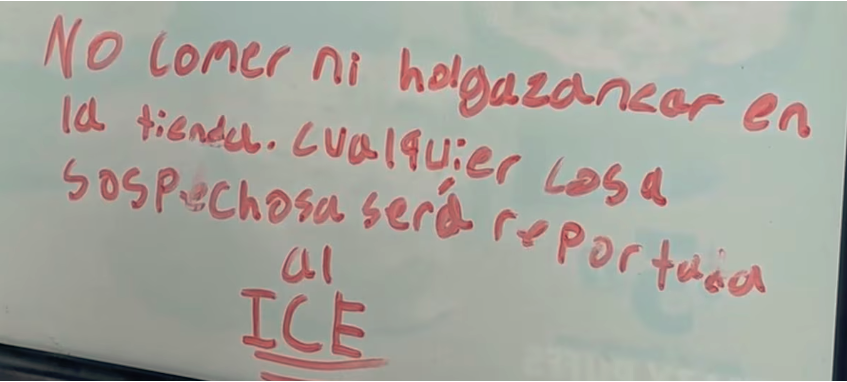 No comer ni holgazanear en
la tienda. cualquier cosa
sospechosa será reportada
al
ICE